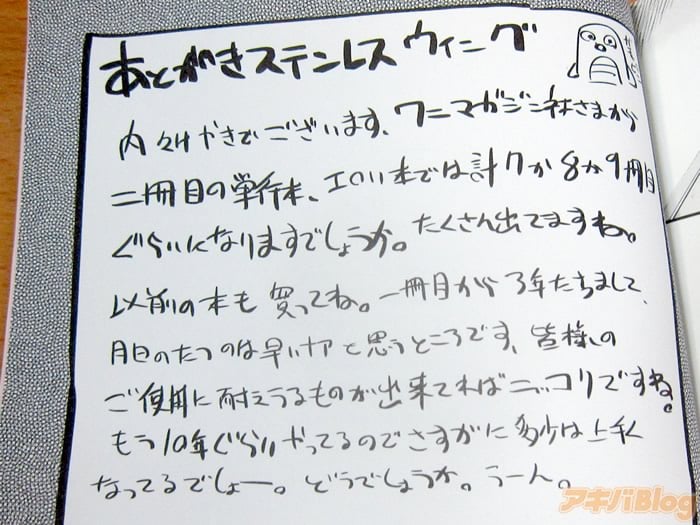 あとがきステンレスウィング
内々けやきでございます、ワニマガジン社さまから
二冊目の単行本、エロい本では計7か8か9冊目
ぐらいになりますでしょうか。たくさん出てますね。
以前の本も買ってね。一冊目から3年たちまして、
月日のたつのは早いナァと思うところです、皆様の
ご使用に耐えうるものが出来てればニッコリですね。
もう10年ぐらいやってるのでさすがに多少は上手く
なってるでしょー。どうでしょうか。うーん。
アキバBlog